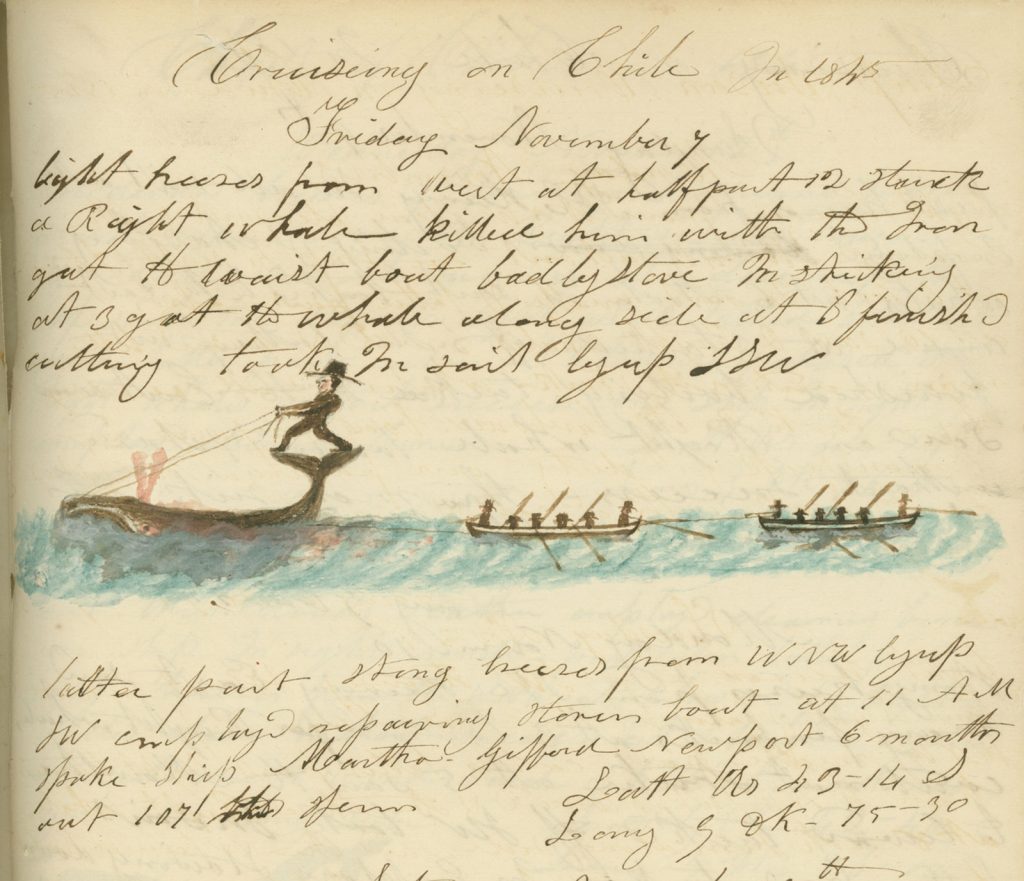 Cruiseing on Chile In 1845
Friday November 7
light breezes from West at half past 12 struck
a Right whale killed him with the Iron
got the waist boat badly stove In striking
at 3 got the whale along side at 6 finishd
cutting took In sail by up SSW
latter part strong breezes from WNW by up
SW employd repairing stoven boat at 11 AM
spoke Ship Martha Gifford Newport 6 months
out 107 sperm
Latt Obs 43-14 S
Long 75-30